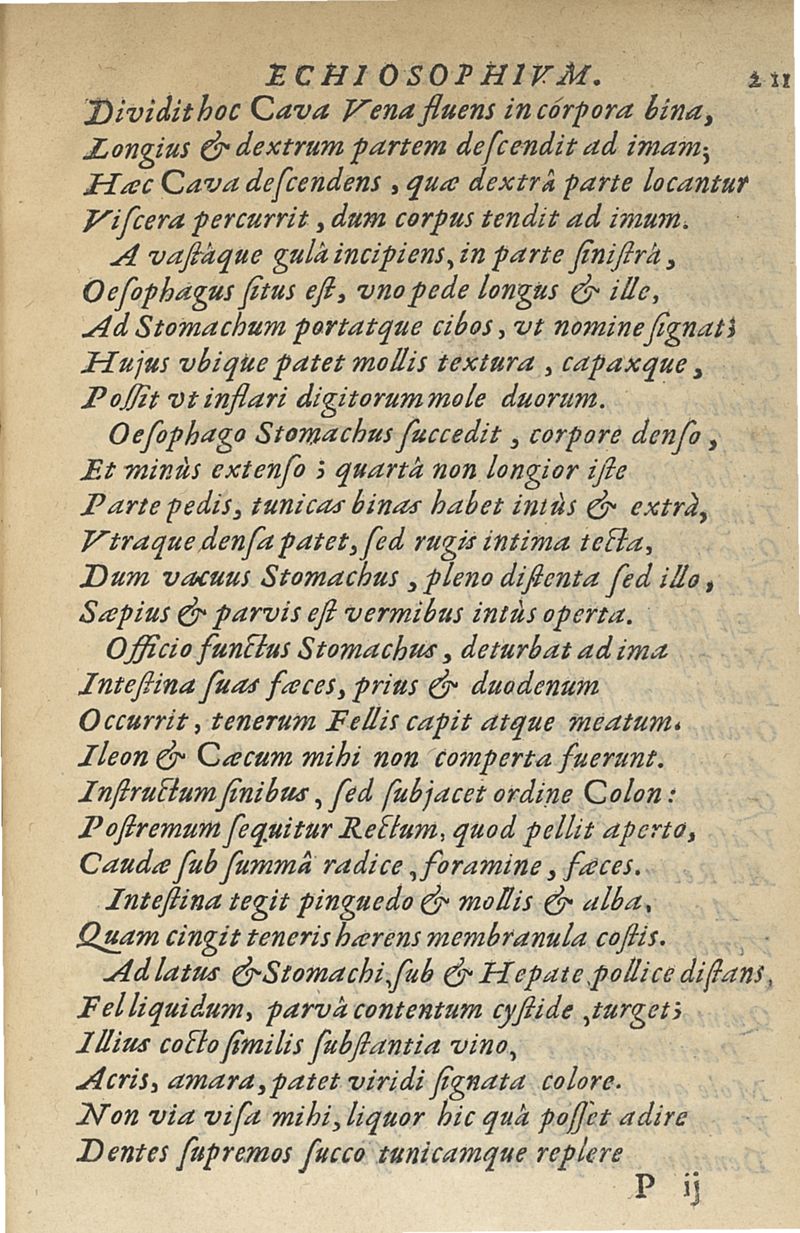 ECHIOSOPHIVM. 211
Dividit hoc Cava Vena fluens in córpora bina,
Longius & dextrum partem deſcendit ad imam;
Hæc Cava deſcendens, quæ dextrâ parte locantur
Viſcera percurrit, dum corpus tendit ad imum.
A vaſtâque gulâ incipiens, in parte ſiniſtrâ,
Oeſophagus ſitus eſt, vno pede longus & ille,
Ad Stomachum portatque cibos, vt nomine ſignat;
Hujus vbique patet mollis textura, capaxque,
Poſſit vt inflari digitorum mole duorum.
Oeſophago Stomachus ſuccedit, corpore denſo,
Et minùs extenſo; quartâ non longior iſte
Parte pedis, tunicas binas habet intùs & extrà,
Vtraque denſa patet, ſed rugis intima tecta,
Dum vacuus Stomachus, pleno diſtenta ſed illo,
Sæpius & parvis eſt vermibus intùs operta.
Officio functus Stomachus, deturbat ad ima
Inteſtina ſuas fæces, prius & duodenum
Occurrit, tenerum Fellis capit atque meatum.
Ileon & Cæcum mihi non comperta fuerunt.
Inſtructum ſinibus, ſed ſubjacet ordine Colon:
Poſtremum ſequitur Rectum, quod pellit aperto,
Caudæ ſub ſummâ radice, foramine, fæces.
Inteſtina tegit pinguedo & mollis & alba,
Quam cingit teneris hærens membranula coſtis.
Ad latus & Stomachi, ſub & Hepate pollice diſtans,
Fel liquidum, parvâ contentum cyſtide, turget;
Illius cocto ſimilis ſubſtantia vino,
Acris, amara, patet viridi ſignata colore.
Non via viſa mihi, liquor hic quâ poſſet adire
Dentes ſupremos ſucco tunicamque replere
P ij